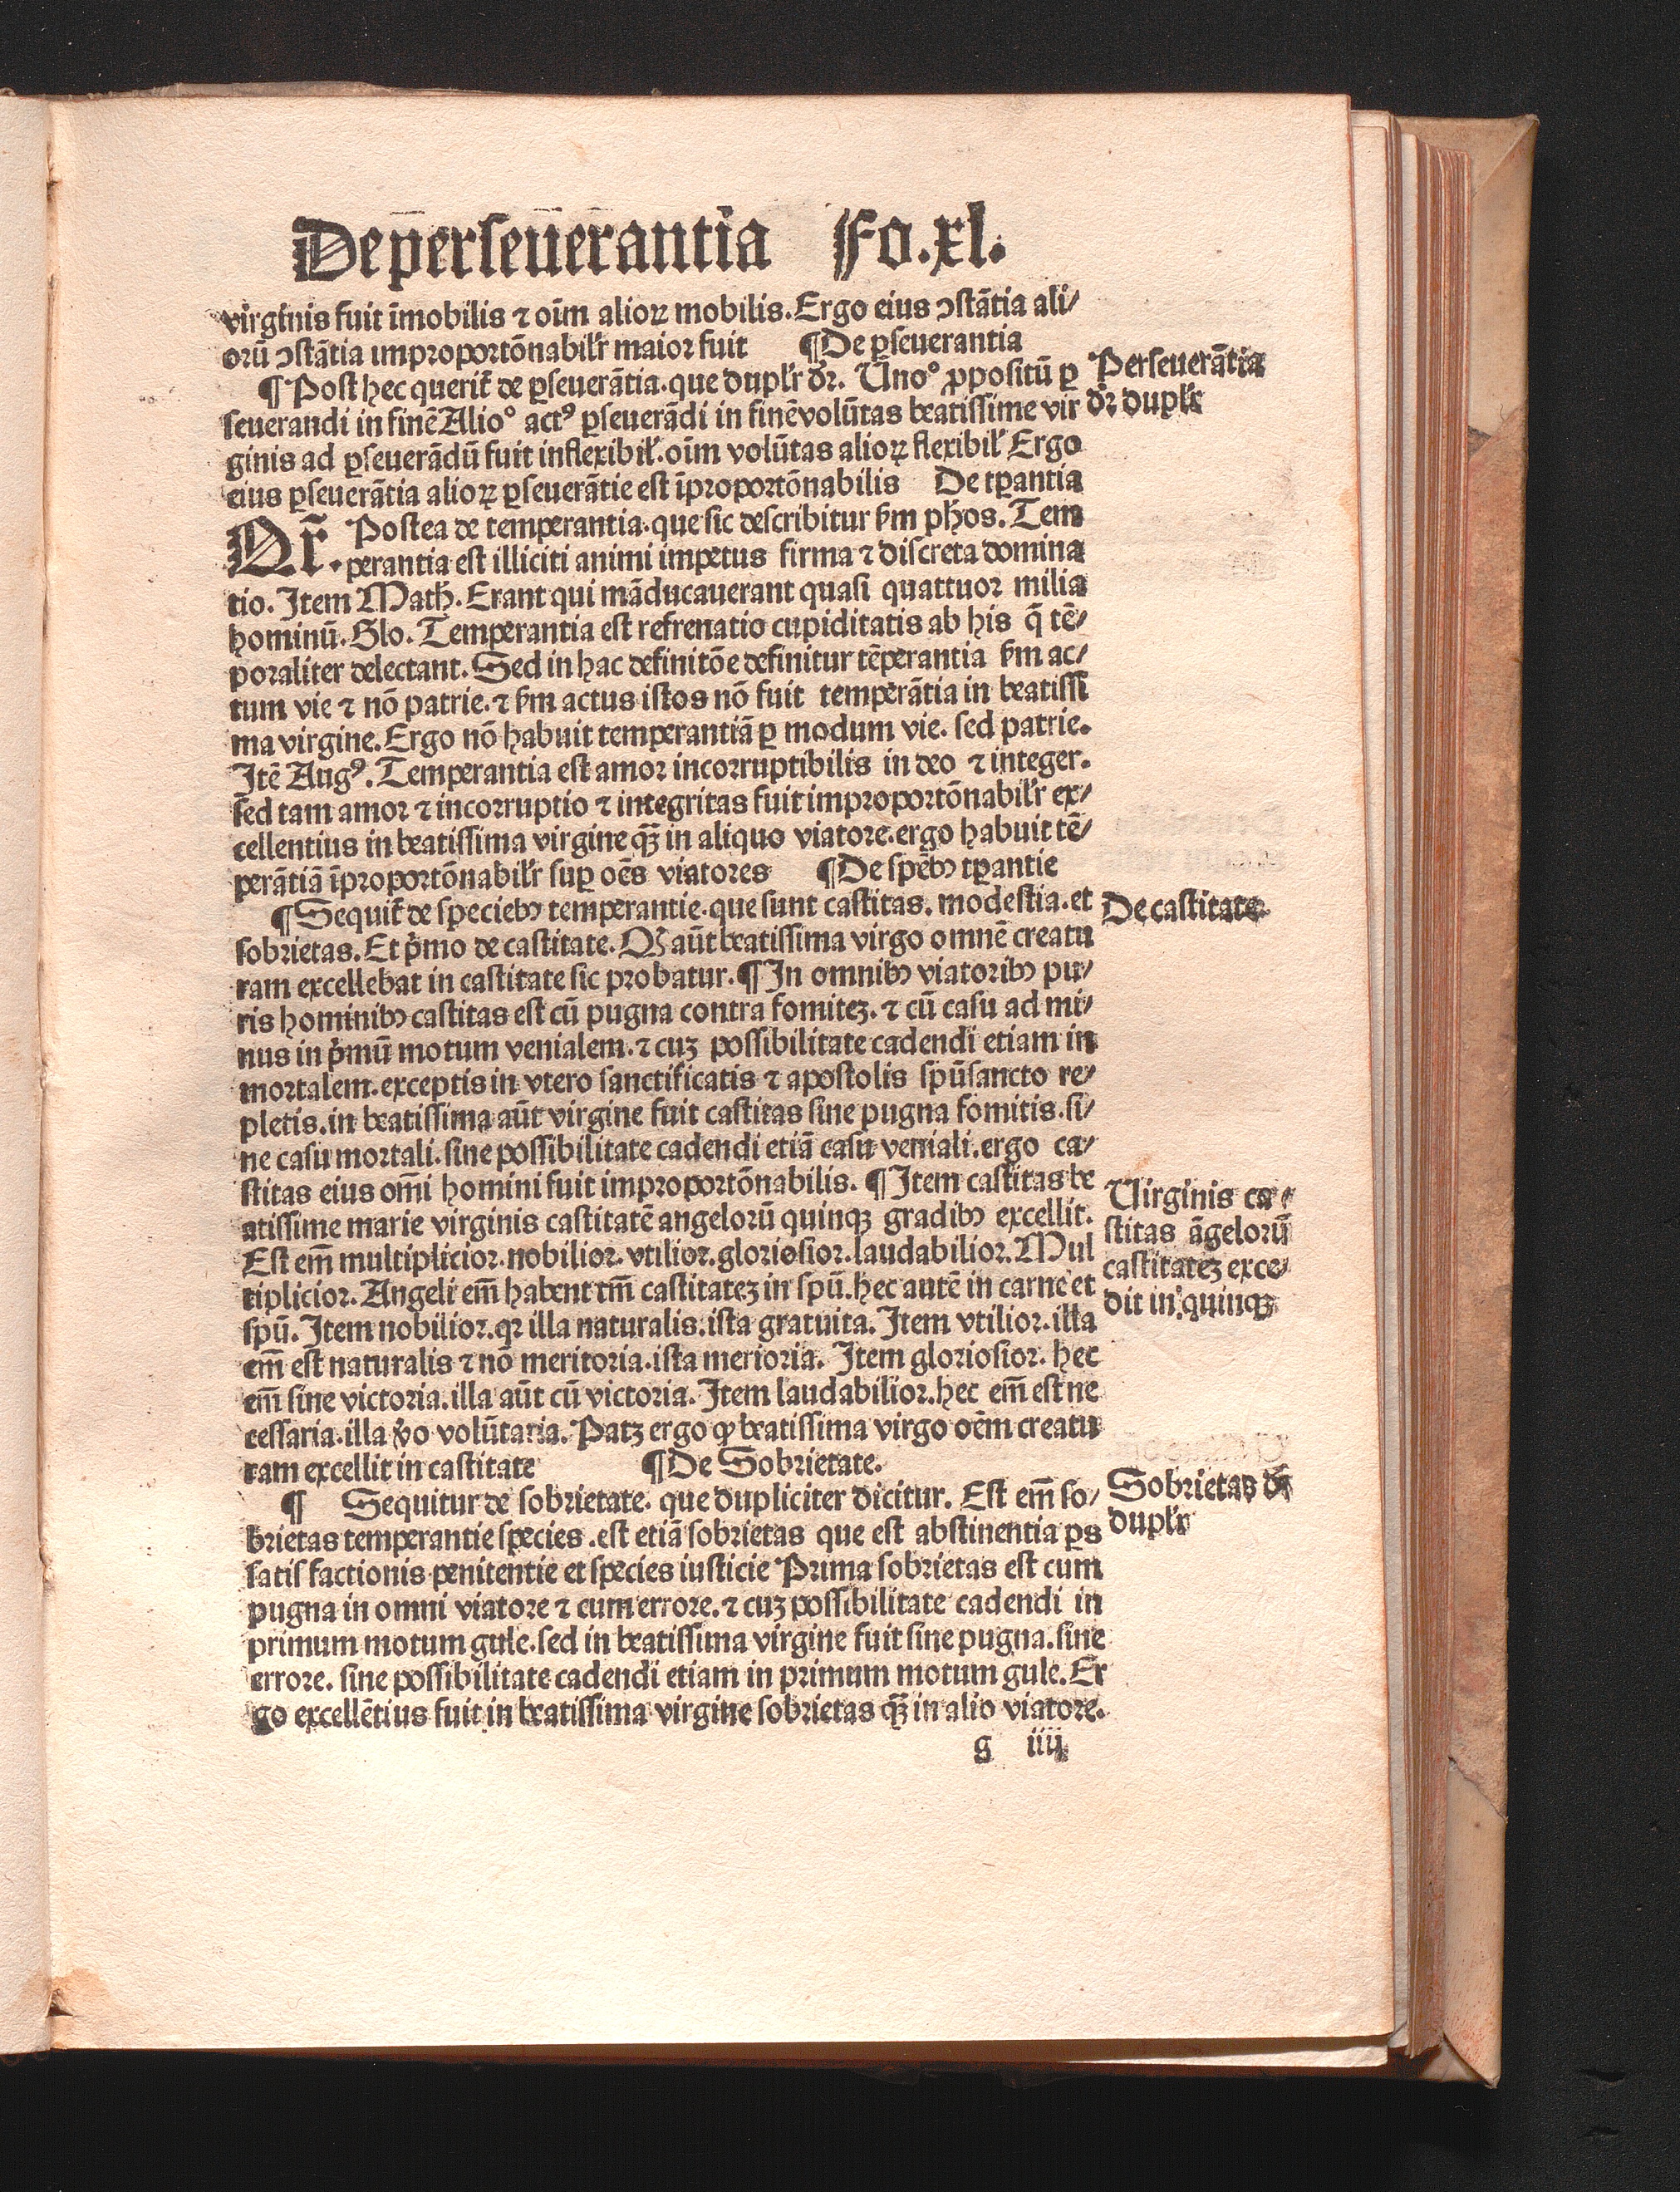 De perseuerantia Fo.xl.
virginis fuit īmobilis ⁊ oīm alioꝝ mobilis. Ergo eius ↄstātia ali⸗
orū ↄstātia improportōnabilr̄ maior fuit ¶De ꝑseuerantia
¶Post hec querit̄ de ꝑseuerātia. que duplr̄ dr̄. Uno° ꝓpositū ꝑ
seuerandi in finē Alio° actꝰ ꝑseuerādi in finē volūtas beatissime vir
ginis ad ꝑseuerādū fuit inflexibil̄. oīm volūtas alioꝝ flexibil̄ Ergo
eius ꝑseuerātia alioꝝ ꝑseuerātie est īproportōnabilis De tꝑantia
Qr̄. Postea de temperantia. que sic describitur ẜm ph̄os. Tem
perantia est illiciti animi impetus firma ⁊ discreta domina
tio. Item Math̄. Erant qui māducauerant quasi quattuor milia
hominū. Glo. Temperantia est refrenatio cupiditatis ab his q̄ tē⸗
poraliter delectant. Sed in hac definitōe definitur tēperantia ẜm ac⸗
tum vie ⁊ nō patrie. ⁊ ẜm actus istos nō fuit temperātia in beatissi
ma virgine. Ergo nō habuit temperantiā ꝑ modum vie. sed patrie.
Itē Augꝰ. Temperantia est amor incorruptibilis in deo ⁊ integer.
sed tam amor ⁊ incorruptio ⁊ integritas fuit improportōnabilr̄ ex⸗
cellentius in beatissima virgine qꝫ̄ in aliquo viatore. ergo habuit tē⸗
perātiā īproportōnabilr̄ suꝑ oēs viatores ¶De spēbꝫ tꝑantie
¶Sequit̄ de speciebꝫ temperantie. que sunt castitas. modestia. et
sobrietas. Et pͥmo de castitate. Qꝙ aūt beatissima virgo omnē creatu
ram excellebat in castitate sic probatur. ¶In omnibꝫ viatoribꝫ pu⸗
ris hominibꝫ castitas est cū pugna contra fomiteꝫ. ⁊ cū casu ad mi⸗
nus in pͥmū motum venialem. ⁊ cuꝫ possibilitate cadendi etiam in
mortalem. exceptis in vtero sanctificatis ⁊ apostolis spūsancto re⸗
pletis. in beatissima aūt virgine fuit castitas sine pugna fomitis. si⸗
ne casu mortali. sine possibilitate cadendi etiā casu veniali. ergo ca⸗
stitas eius om̄i homini fuit improportōnabilis. ¶Item castitas be
atissime marie virginis castitatē angelorū quinqꝫ gradibꝫ excellit.
Est em̄ multiplicior. nobilior. vtilior. gloriosior. laudabilior. Mul
tiplicior. Angeli em̄ habent tm̄ castitateꝫ in spū. hec autē in carne et
spū. Item nobilior. qꝛ illa naturalis. ista gratuita. Item vtilior. illa
em̄ est naturalis ⁊ nō meritoria. ista merioria. Item gloriosior. hec
em̄ sine victoria. illa aūt cū victoria. Item laudabilior. hec em̄ est ne
cessaria. illa v̊o volūtaria. Patꝫ ergo ꝙ beatissima virgo oēm creatu
ram excellit in castitate ¶De Sobrietate.
¶ Sequitur de sobrietate. que dupliciter dicitur. Est em̄ so⸗
brietas temperantie species. est etiā sobrietas que est abstinentia ꝑs
satis factionis penitentie et species iusticie Prima sobrietas est cum
pugna in omni viatore ⁊ cum errore. ⁊ cuꝫ possibilitate cadendi in
primum motum gule. sed in beatissima virgine fuit sine pugna. sine
errore. sine possibilitate cadendi etiam in primum motum gule. Er
go excellētius fuit in beatissima virgine sobrietas qꝫ̄ in alio viatore.
g iiij
Perseuerātia
dr̄ duplr̄
De castitate
Uirginis ca⸗
stitas āgelorū
castitateꝫ exce⸗
dit in quinqꝫ
Sobrietas dr̄
duplr̄